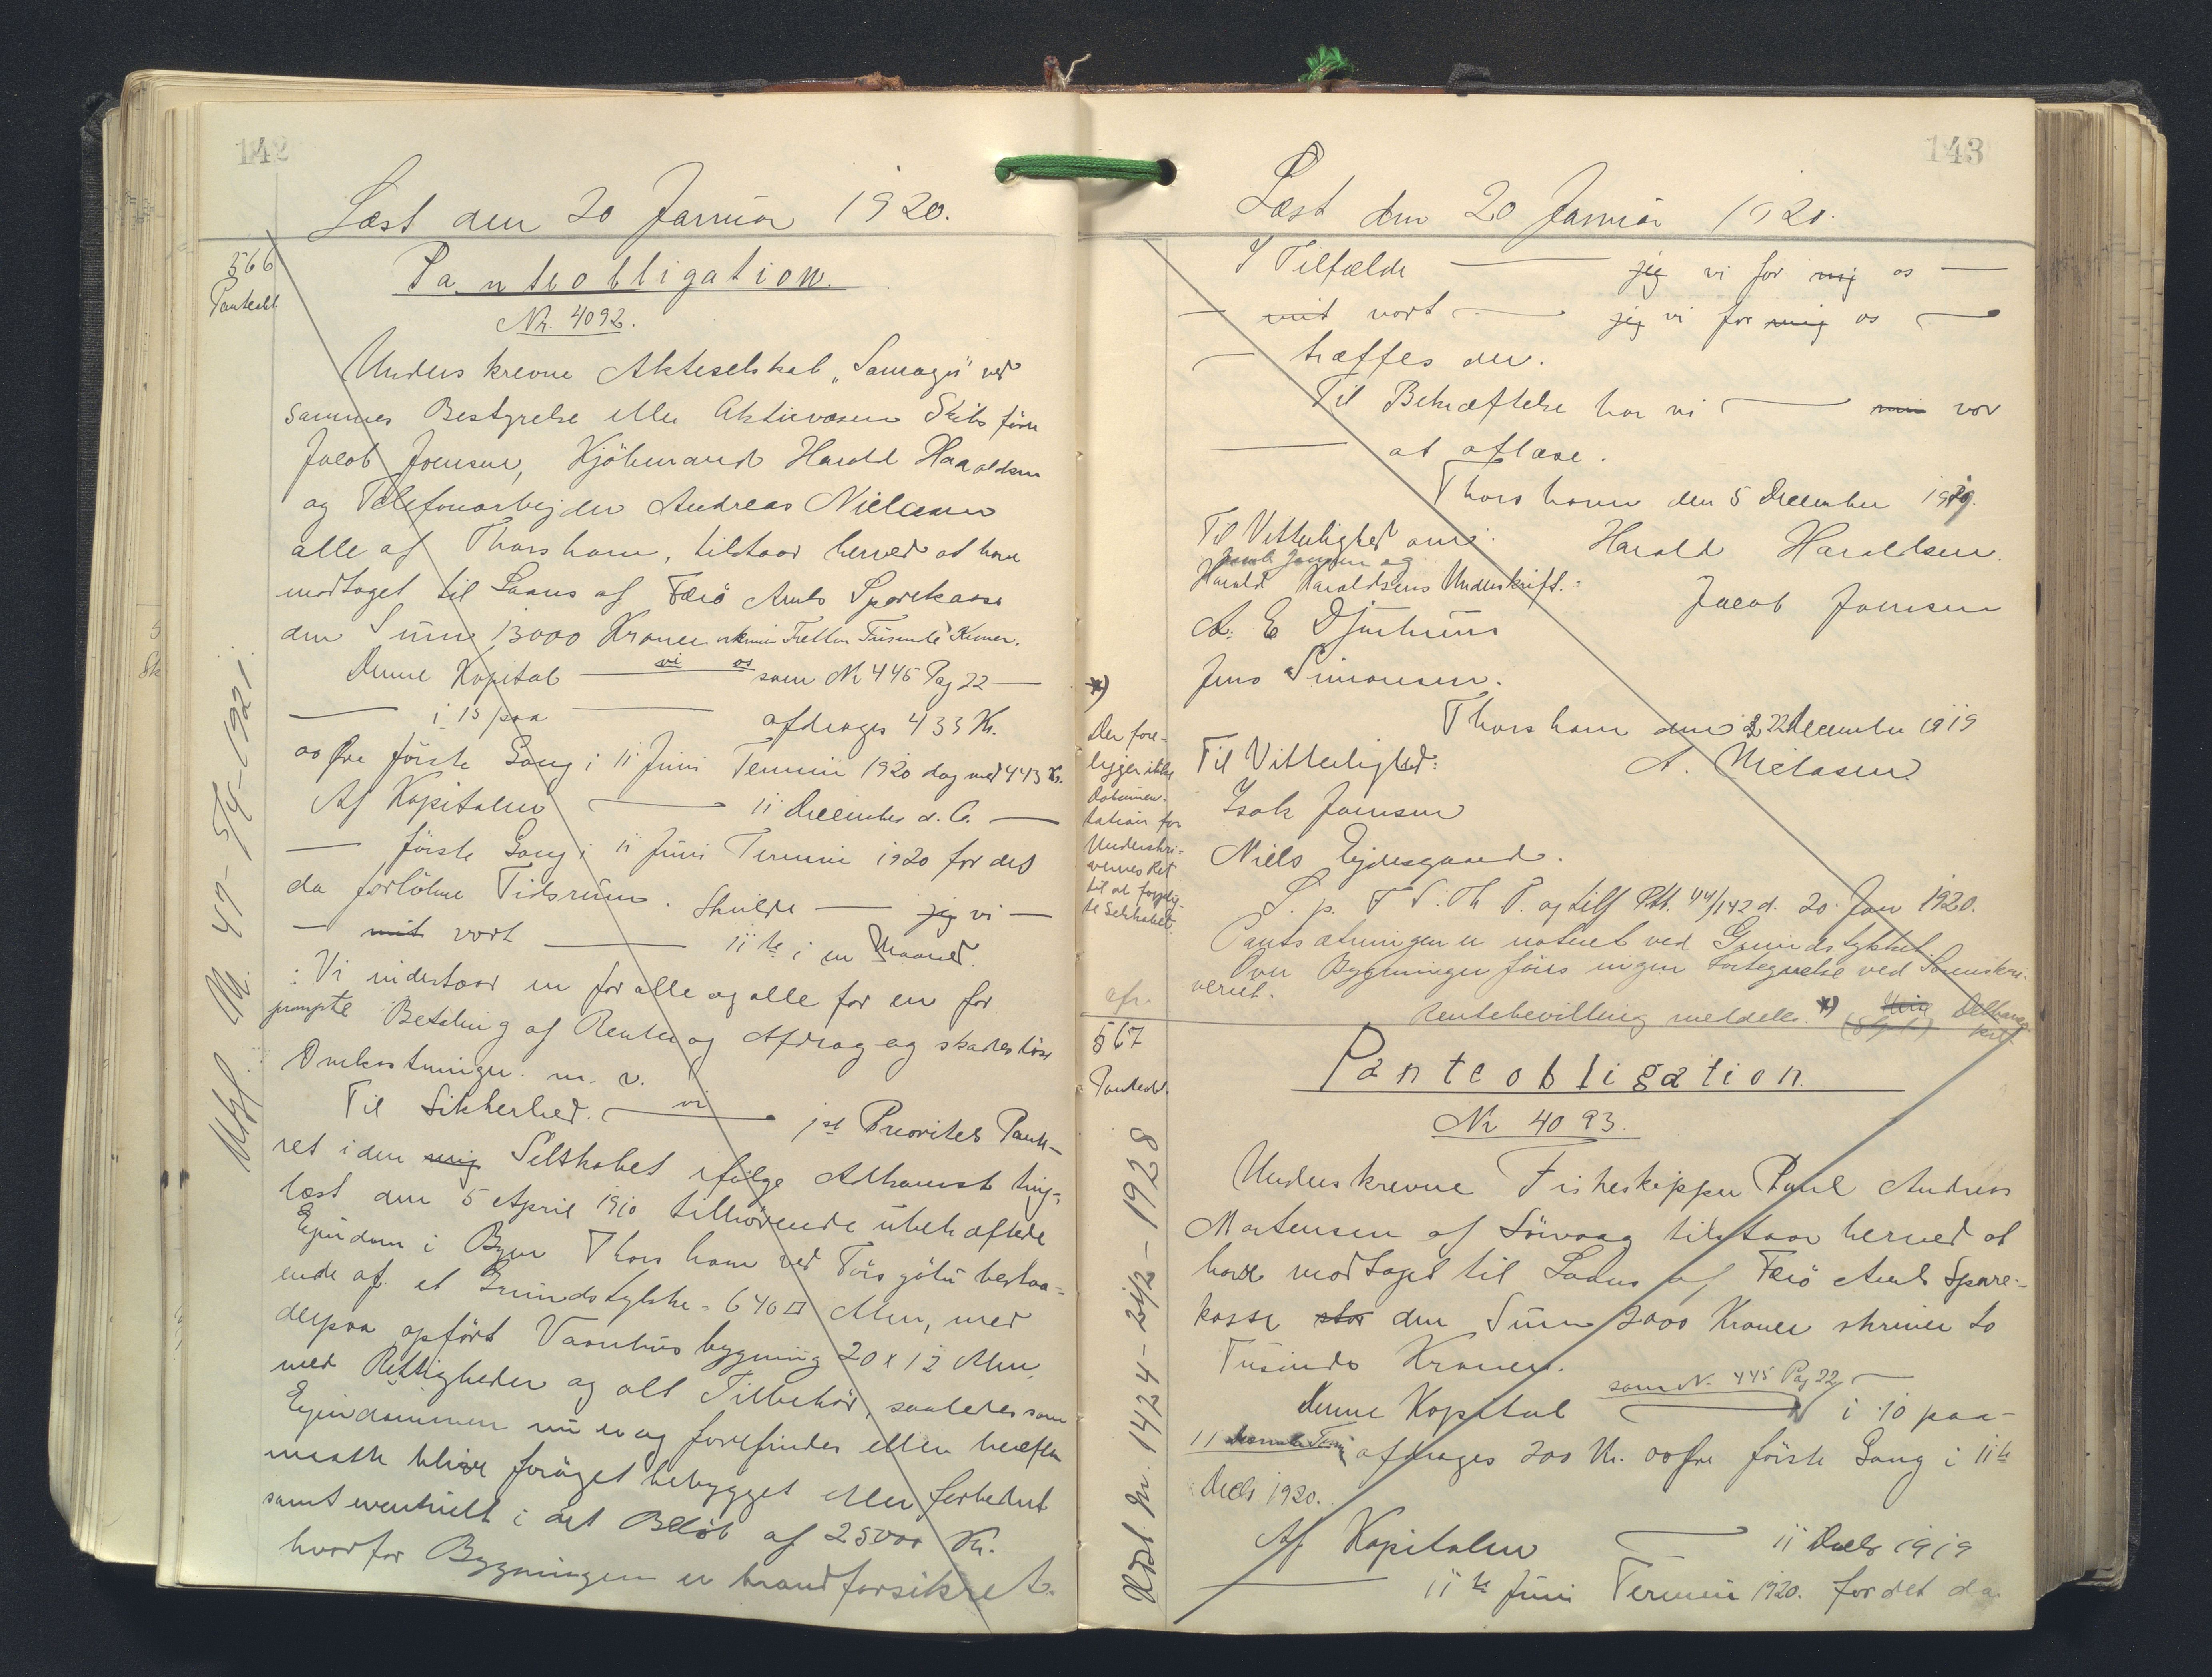 142
Læst den 20 Januar 1920.
566
Panteobl.
Panteobligation.
Nr. 4092.
Underskrevne Aktieselskab „ ved
sammes Bestyrelse eller Aktieværere Skibsfører
Jacob Joensen, Kjöbmand Harald Haraldsen
og Telefonarbejder Andreas Nielasen
alle af Thorshavn, tilstaar herved at have
modtaget til Laans af Færö Amts Sparekasse
den Sum 13000 Kroner Tretten Tusinde Kroner.
Denne Kapital — vi os som Nr 445 Pag 22 —
— i 15 paa — afdrages 433 Kr.
00 Öre förste Gang i 11 Juni Termin 1920 dog med 443 Kr.
Af Kapitalen — 11 December d. A. —
— förste Gang i 11 Juni Termin 1920 for det
da forlöbne Tidsrum. Skulde — jeg vi —
— mit vort — 11te i en Maaned.
: Vi indestaar en for alle og alle for en for
prompte Betaling af Renter og Afdrag og skadeslöse
Omkostninger. m. v.
Til Sikkerhed. — vi — 1st Prioritets Pante-
ret i den mig Selskabet ifölge Adkomst ting-
læst den 5 April 1910 tilhörende ubehæftede
Ejendom i Byen Thorshavn ved bestaa-
ende af et Grundstykke = 640 □ Alen, med
derpaa opfört Vaanhusbygning 20 x 12 Alen,
med Rettigheder og alt Tilbehör, saaledes som
Ejendommen nu er og forefindes eller herefter
maatte blive foröget bebygget eller forbedret
samt eventuelt i det Belöb af 25000 Kr.
hvorfor Bygningen er brandforsikret.
Nr. 47 - 5/4 - 1921
143
Læst den 20 Januar 1920.
I Tilfælde — jeg vi for mig os —
— mit vort — jeg vi for mig os —
— træffes der.
Til Bekræftelse har vi — min vor
— at aflæse.
Thorshavn den 5 December 1919.
Til Vitterlighed om: Harald Haraldsen.
Jacob Joensen og
Harald Haraldsens Underskrift.: Jacob Joensen
A. E Djurhuus
Jens Simonsen.
Thorshavn den 22 December 1919
Til Vitterlighed: A. Nielasen.
Isak Joensen
Niels Ejdesgaard.
L. p. T S. Th P. og tilf 44/142 d. 20. Jan 1920.
Pantsætningen er noteret ved Grundstykket
Over Bygninger föres ingen Fortegnelse ved Sorenskri-
veriet.
Rentebevilling meddelt. *)
*)
Der fore-
ligger ikke
Dokumen-
tation for
Underskri-
vernes Ret
til at forplig-
te Selskabet.
afr.
567
Panteobl.
Panteobligation.
Nr 4093.
Underskrevne Fiskeskipper Poul Andreas
Mortensen af Sörvaag tilstaar herved at
have modtaget til Laans af Færö Amts Spare-
kasse stor den Sum 2000 Kroner skriver to
Tusinde Kroner.
som Nr 445 Pag 22 —
Denne Kapital — i 10 paa-
11 afdrages 200 Kr. 00 Öre förste Gang i 11te
Decbr 1920.
Af Kapitalen — 11 Decbr 1919
— 11te Juni Termin 1920. for det da
Udsl. Nr. 1424 - 24/2 - 1928